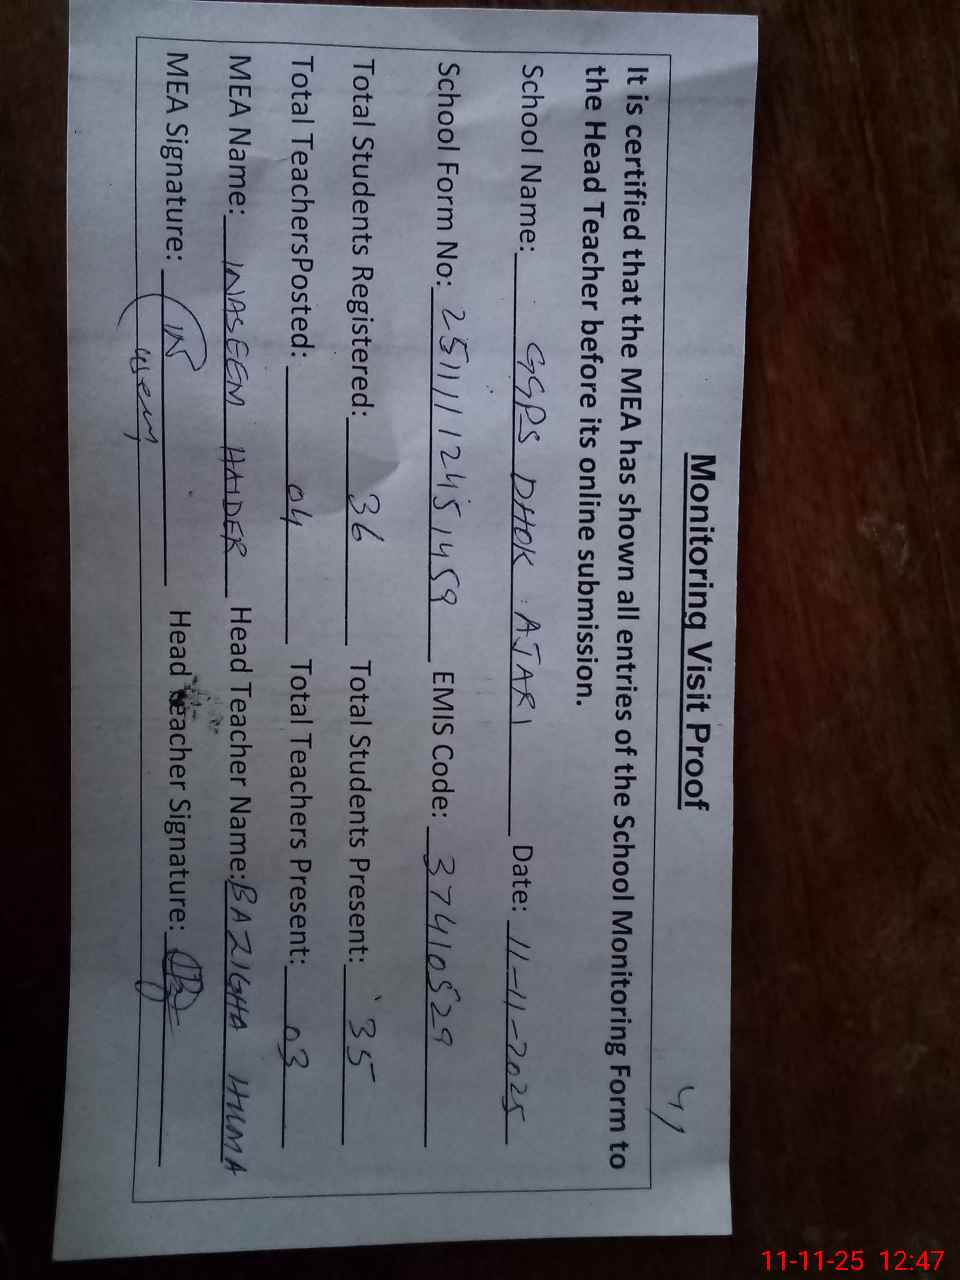 4/
Monitoring Visit Proof
It is certified that the MEA has shown all entries of the School Monitoring Form to
the Head Teacher before its online submission.
School Name: GGPS DHOK AJARI Date: 11-11-2025
School Form No: 2511112451459 EMIS Code: 37410529
Total Students Registered: 36 Total Students Present: 35
Total TeachersPosted: 04 Total Teachers Present: 03
MEA Name: WASEEM HAIDER Head Teacher Name: BAZIGHA HUMA
MEA Signature: Head Teacher Signature:
11-11-25 12:47